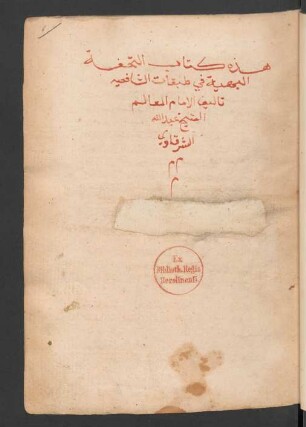 هذه كتاب التحفة
البهية في طبقات الشافعيه
تاليف الامام العالم
الشيخ عبدالله
الشرقاوي
Ex
Biblioth. Regia
Berolinensi